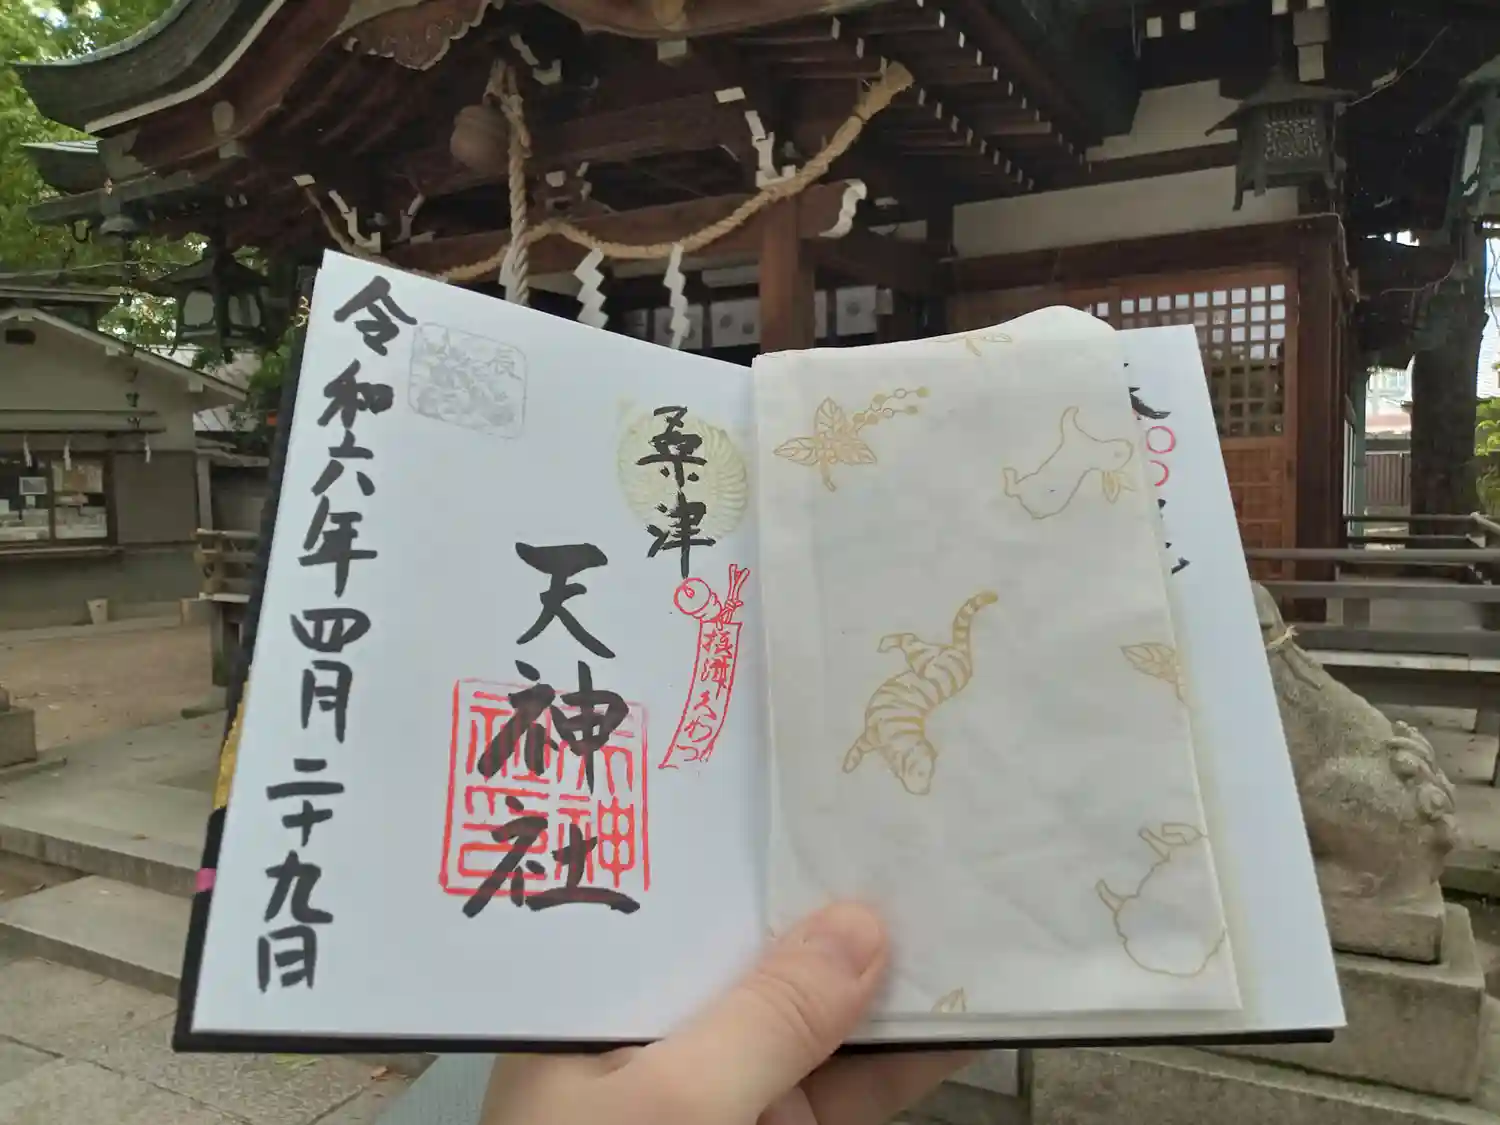 桑津
天神社
摂津くわづ
天神社印
辰
令和六年四月二十九日